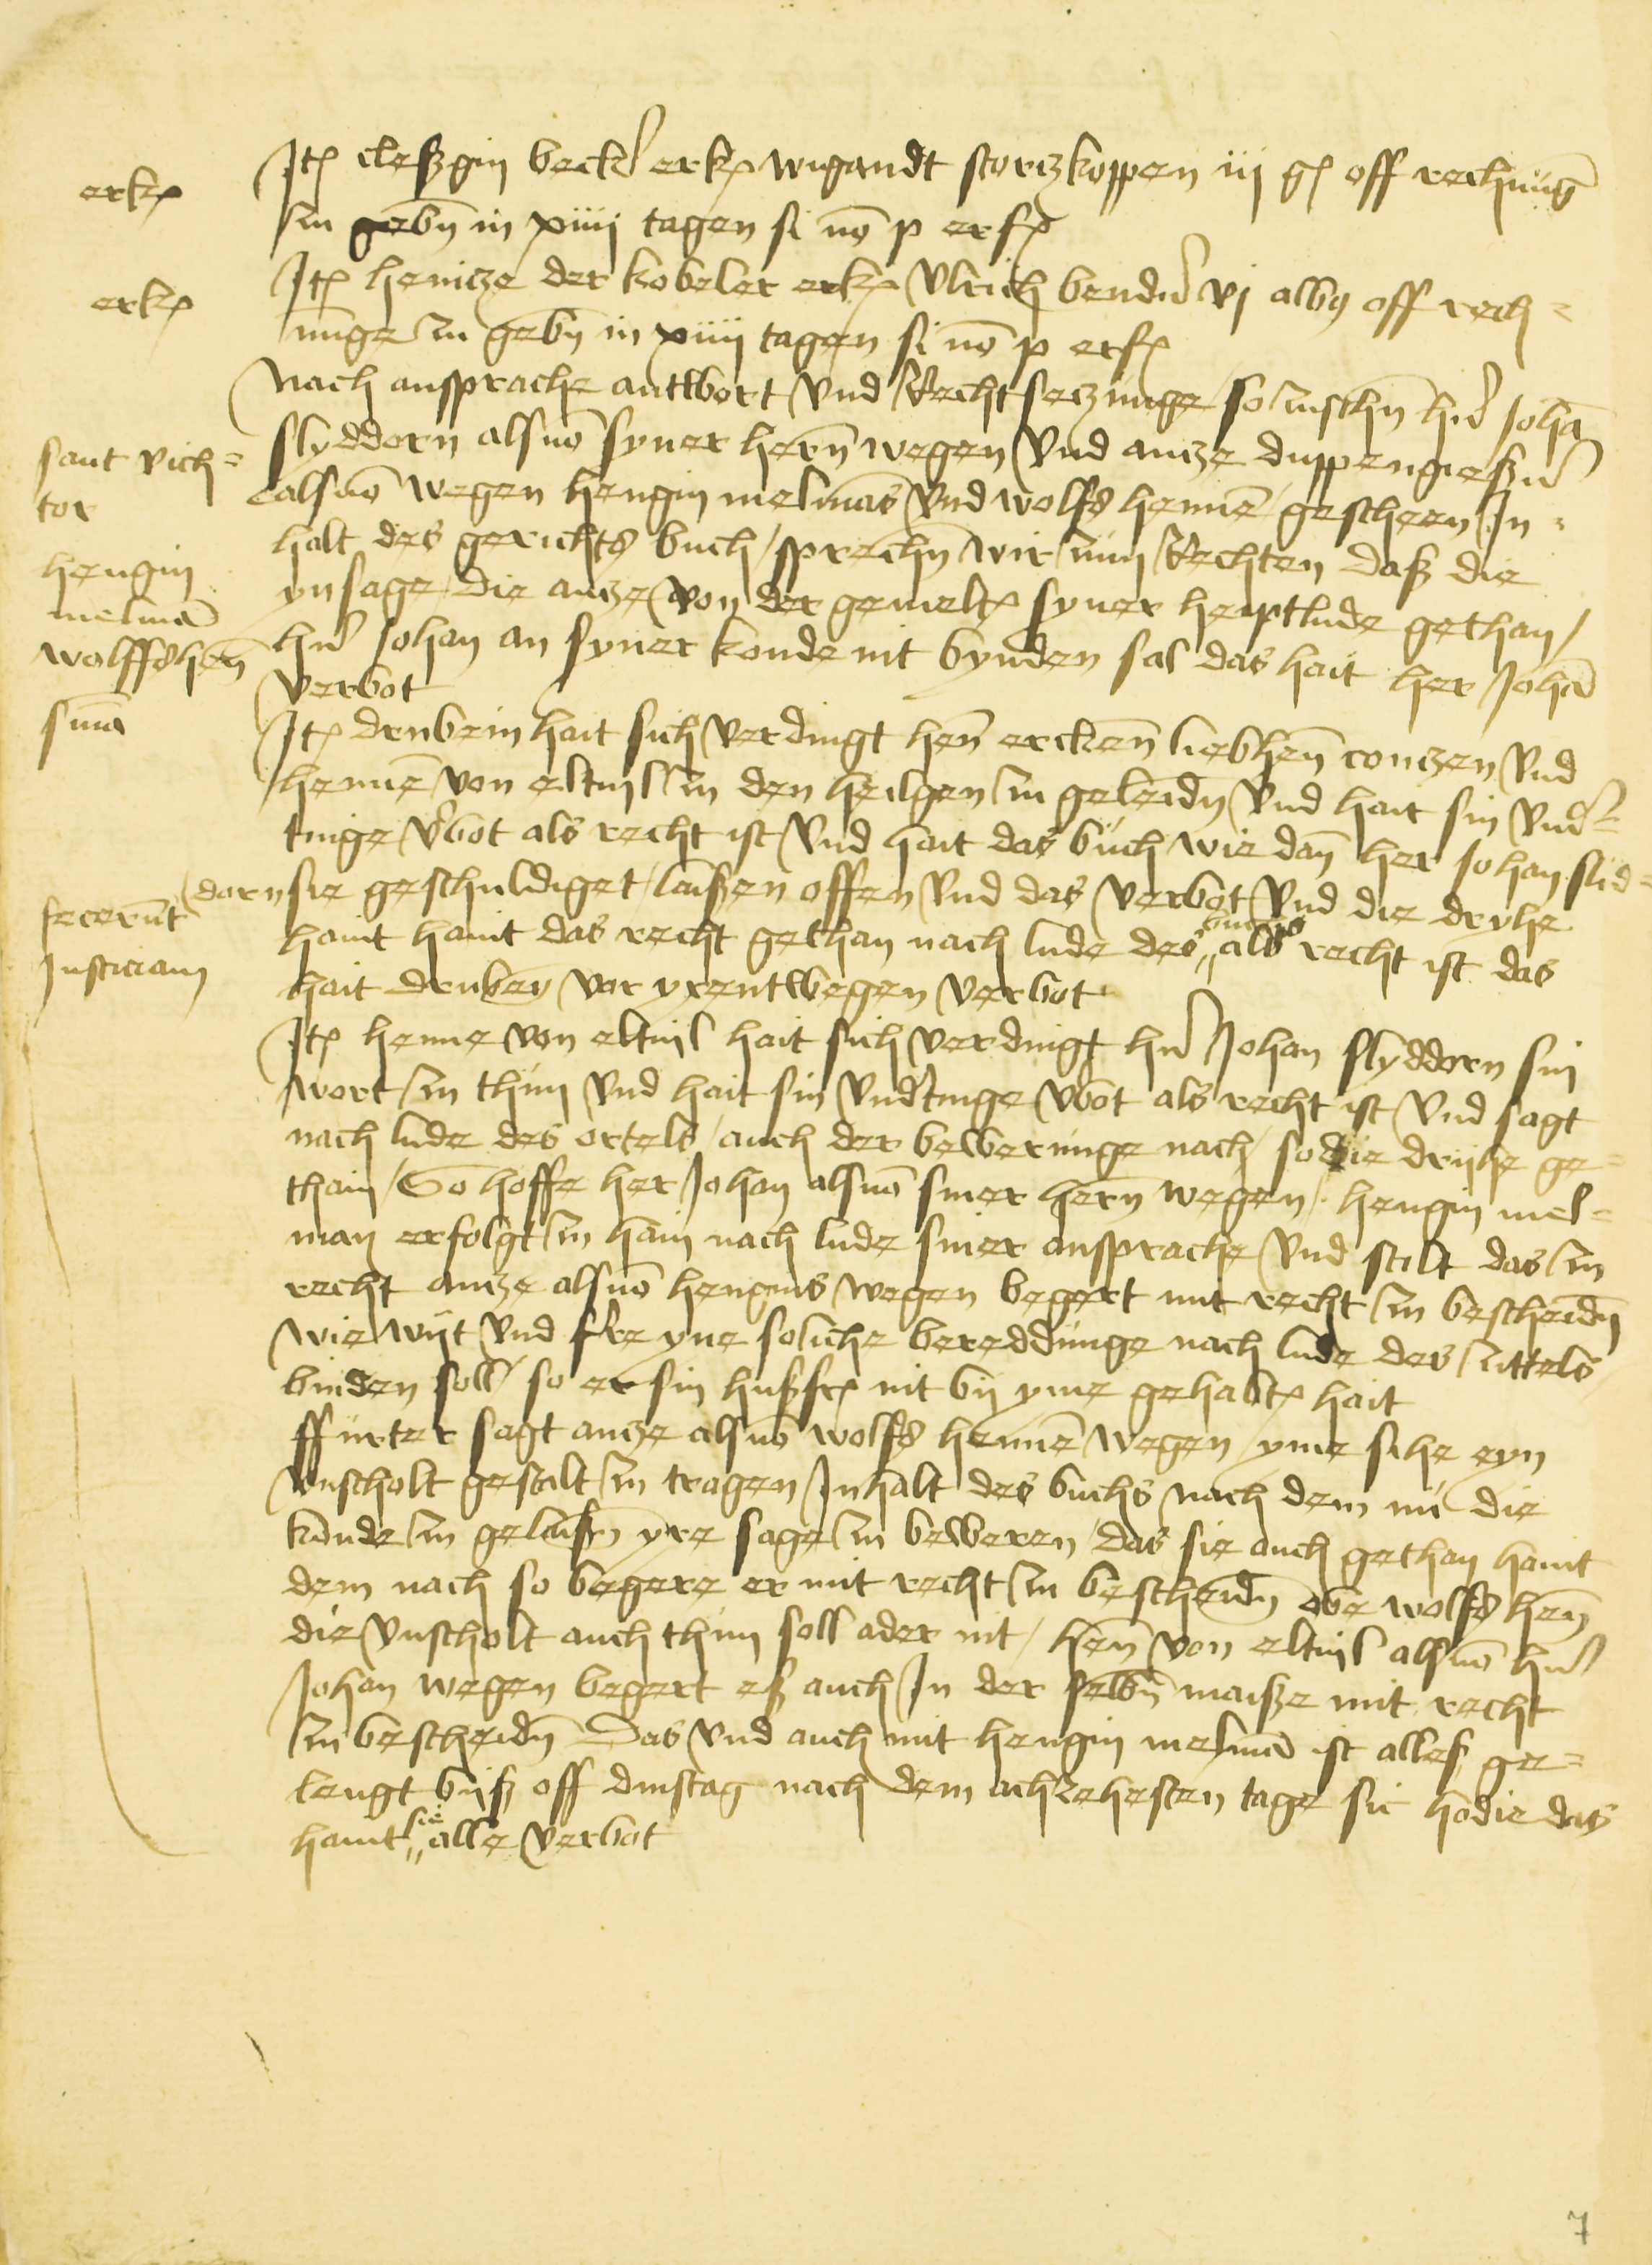 erk
Jt(em) cleßgin becker erk(ennt) wigandt stortzkoppen iij g(ulden) off rechnu(n)g
zu gebn in xiiij tagen si no(n) p erf
erk
Jt(em) heintze der kobeler erk Ulrich bender vj alb(us) off rech=
nu(n)ge zu gebn in xiiij tagen si no p erf
Nach ansprache antwort vnd Rechtsetzunge so zuschn her Joha(n)
sant vich=
tor
slyddorn als vo(n) syner hern wegen vnd antze duppengießer
als vo(n) wegen hengin melma(n)s vnd wolffs henne(n) gescheen In=
halt des gerichts buch / sprechn wir zum Rechten daß die
hengin
melma(n)
ynsage die antze von der gemelt(en) syner heuptlude gethan /
wolffshen
her Johan an syner konde nit bynden sal das hait her Joha(n)
verbot
sma
Jt(em) drubein hait sich verdingt hen ercken liebhen contzen vnd
henne(n) von eltuil zu den heilgen zu geleidn vnd hait sin vnd(er)=
tinge v(er)bot als recht ist vnd hait das buch wie dan her Johan slid=
dorn sie geschuldiget / laißen offen vnd das verbot vnd die dryhe
fecerunt
Justiciam
haint haint das recht gethan nach lude des buchs als recht ist das
hait druben vor yrentwegen verbot
Jt(em) henne von eltuil hait sich verdingt her Johan slyddorn sin
wort zu thun vnd hait sin vndtinge v(er)bot als recht ist vnd sagt
nach lude des ortels / auch der bewerunge nach / so die drijhe ge=
thain / So hoffe her Johan als vo(n) siner hern wegen / hengin mel=
man erfolgt zu hain nach lude siner ansprache vnd stelt das zu
recht antze als vo(n) hengins wegen begert mit recht zu bescheidn
wie wijt vnd ferre yne soliche bereddunge nach lude des zittels /
binden soll / so er sin hußfr(auwe) nit bij yme gehabt hait
ffurter sagt antze als vo(n) wolffs henne(n) wegen / yme sihe eyn
vnscholt gestalt zu tragen Jnhalt des buchs nach dem nu die
konde zu gelaißn yre sage zu beweren / das sie auch gethan haint
dem nach so begere er mit recht zu bescheidn obe wolffs hen
die vnscholt auch thun soll ader nit / hen von eltuil als vo(n) her
Johan wegen begert eß auch Jn der selbn maisze mit recht
zu bescheidn Das vnd auch mit hengin melma(n) ist alles ge=
lengt biß off dinstag nach dem achzehesten tage sic hodie das
haint sie alle verbot
7